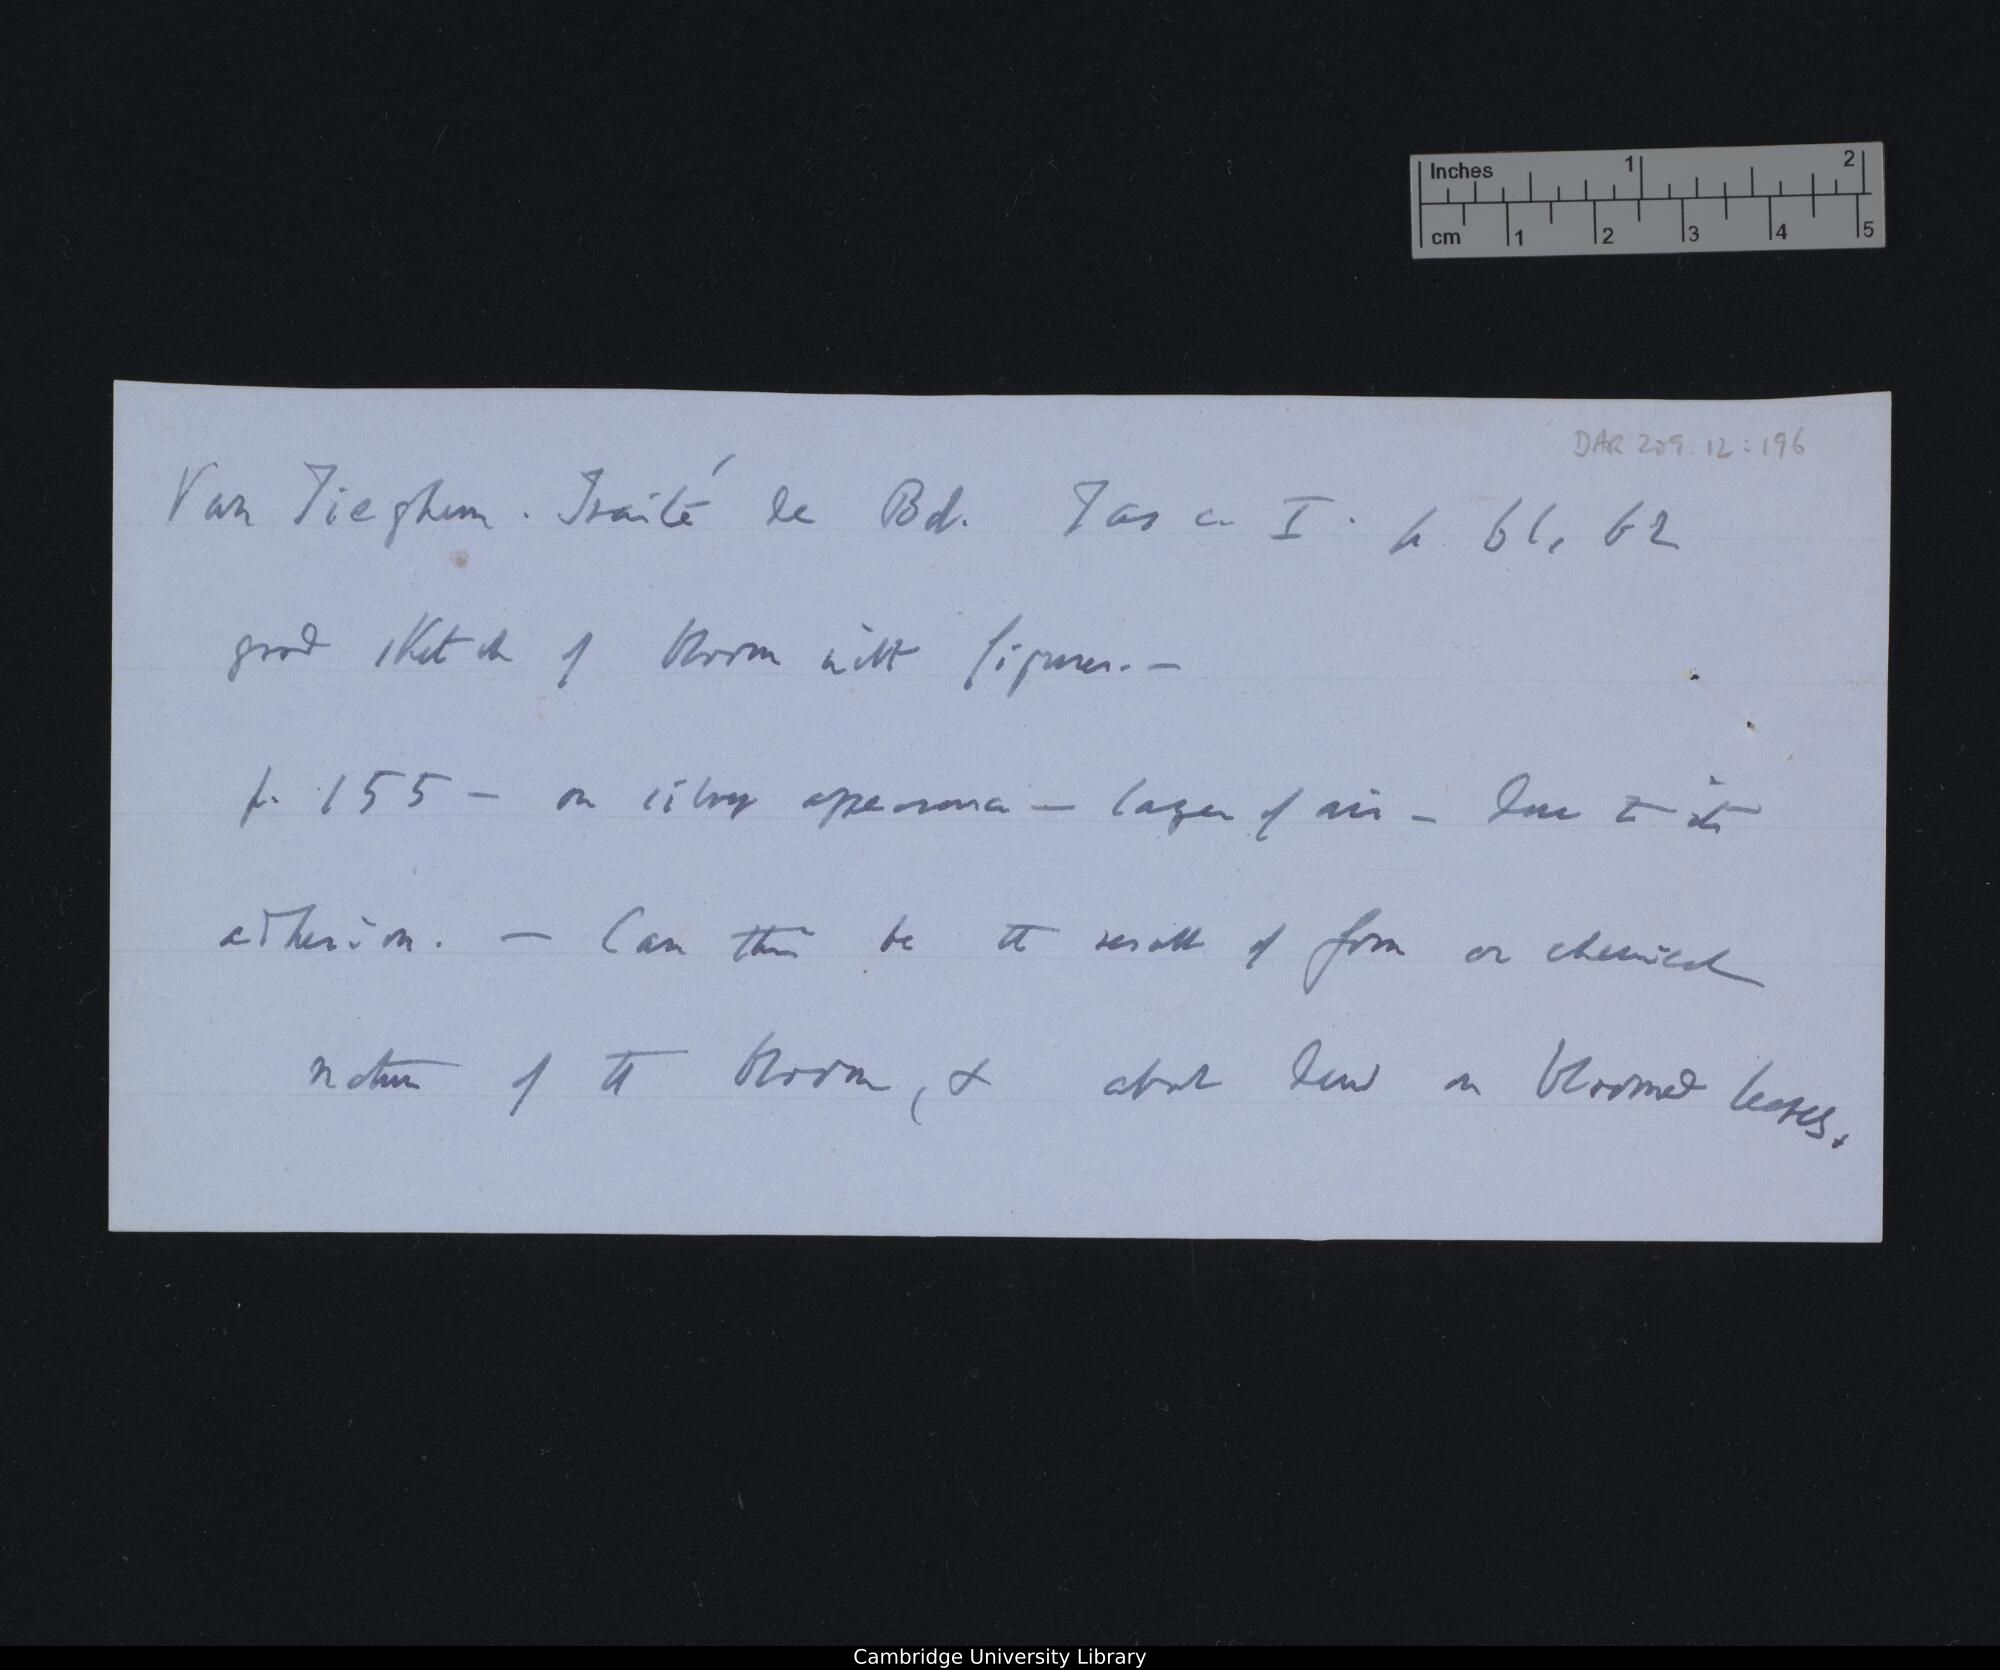 DAR 209.12:196
Inches 1 2
cm 1 2 3 4 5
Van Tieghem. Traité de Bot. Fasc. I. p. 61, 62
good sketch of bloom with figures. —
p. 155 — on silvery appearance — layer of air — due to its
adhesion. — Can this be the result of form or chemical
nature of the bloom, & about dew on bloomed leaves.
Cambridge University Library